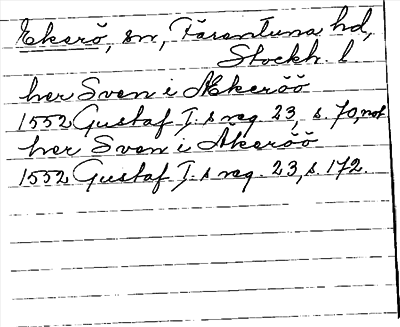 Ekerö, sn, Färentuna hd,
Stockh. l
her Sven i Ækeröö
1552 Gustaf I:s reg. 23, s. 70, not
her Sven i Åkeröö
1552 Gustaf I:s reg. 23, s. 172.